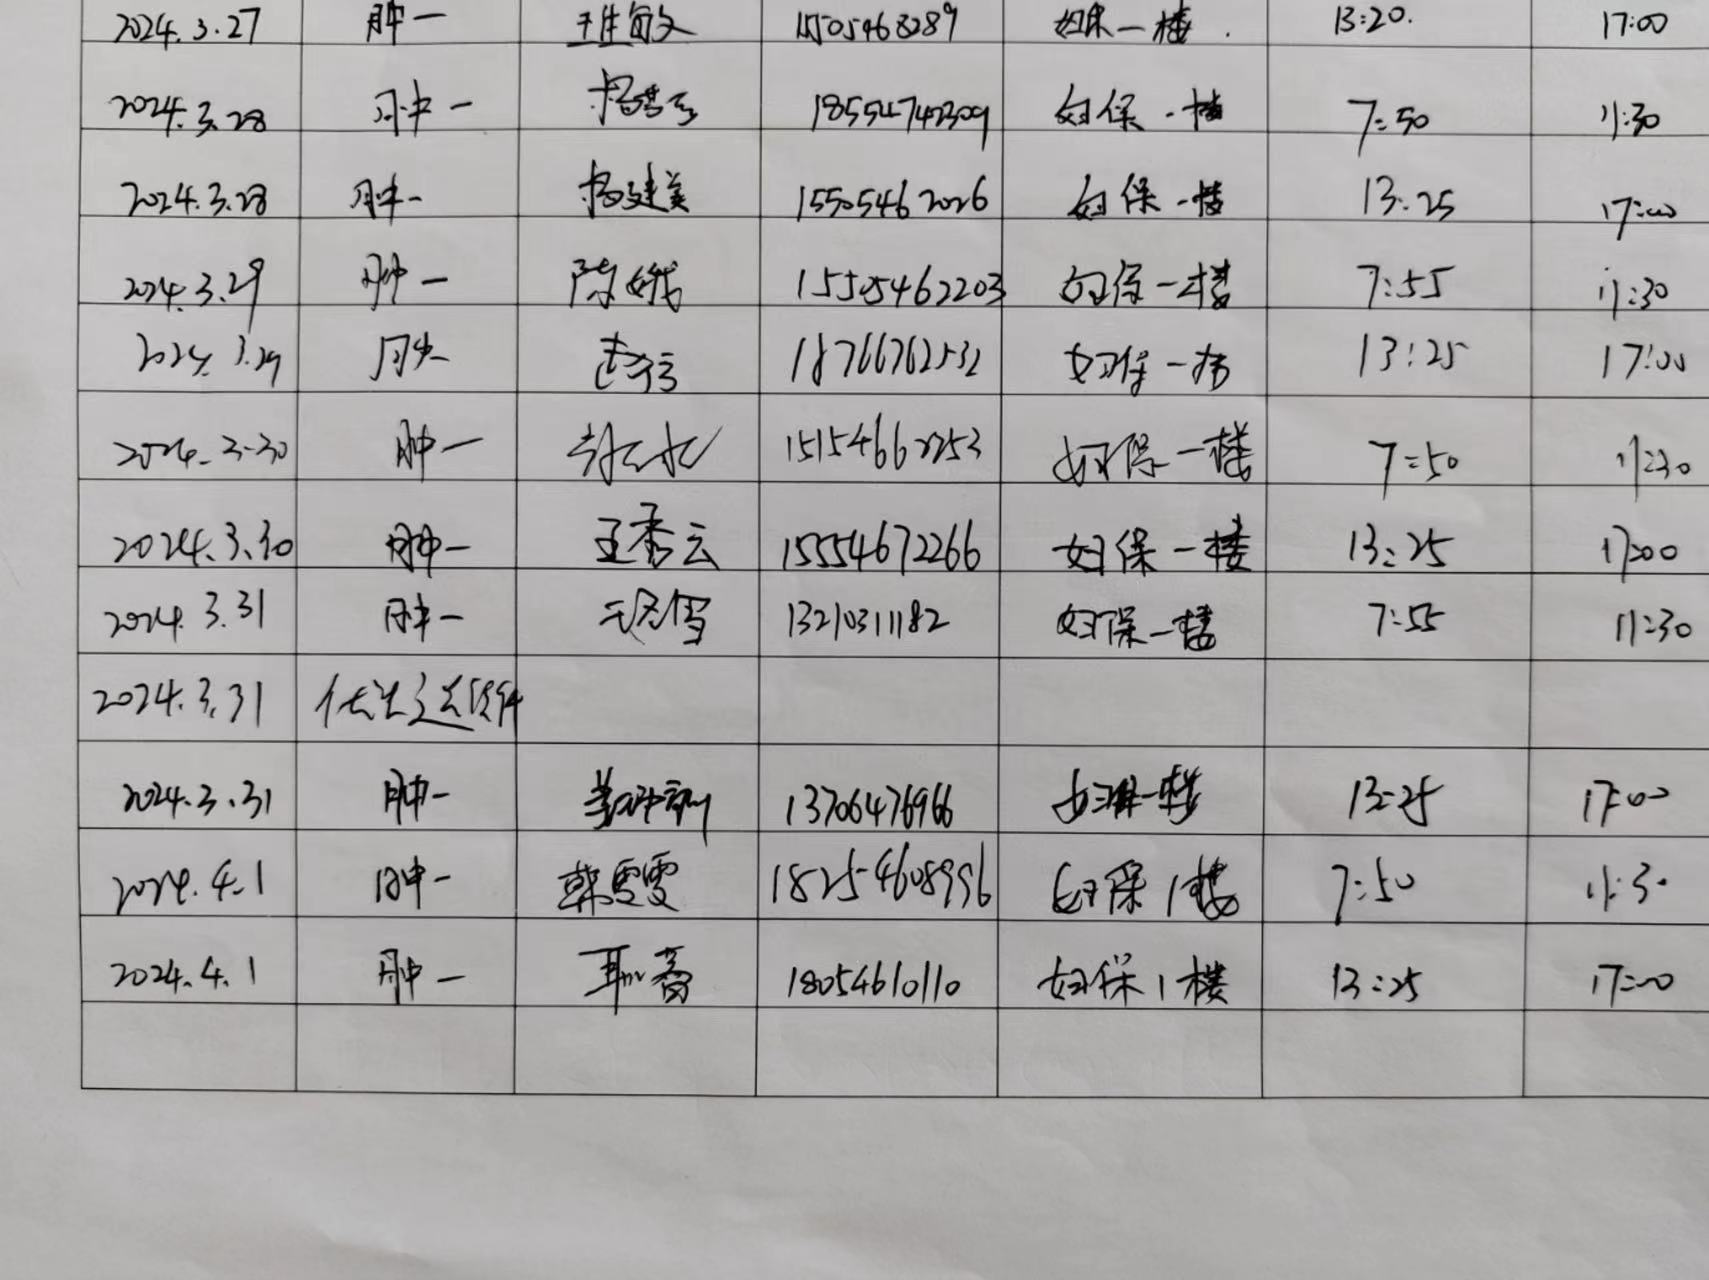 2024.3.27 肿一 15505463289 妇保一楼. 13:20. 17:00
2024.3.28 肿一 18554742309 妇保一楼 7:50 11:30
2024.3.28 肿一 杨建美 15505462026 妇保一楼 13:25 17:00
2024.3.29 肿一 陈娥 15505462203 妇保一楼 7:55 11:30
2024.3.29 18766762532 妇保一楼 13:25 17:00
2024.3.30 肿一 15154662253 妇保一楼 7:50 11:30
2024.3.30 肿一 王秀云 15554672266 妇保一楼 13:25 17:00
2024.3.31 肿一 13210311182 妇保一楼 7:55 11:30
2024.3.31
2024.3.31 肿一 13706476966 妇保一楼 13:25 17:00
2024.4.1 肿一 韩雯雯 18254608996 妇保1楼 7:50 11:30
2024.4.1 肿一 18054610110 妇保1楼 13:25 17:00